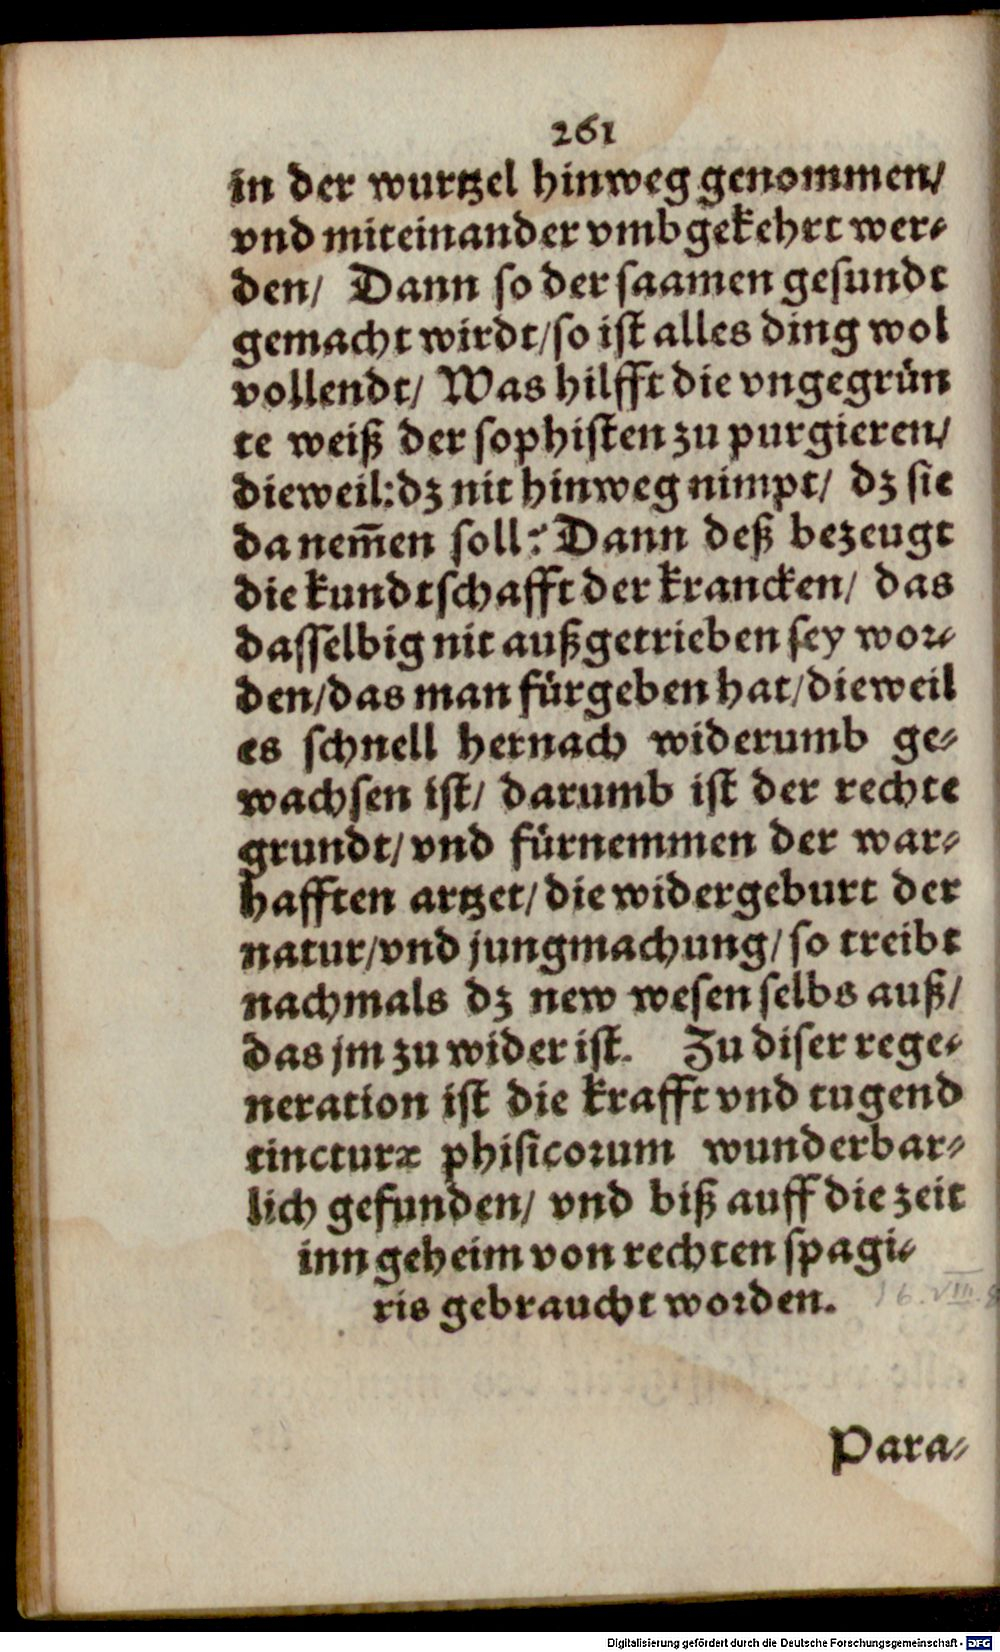 261
in der wurtzel hinweg genommen/
vnd miteinander vmbgekehrt wer⸗
den/ Dann so der saamen gesundt
gemacht wirdt/so ist alles ding wol
vollendt/ Was hilfft die vngegrün
te weiß der sophisten zu purgieren/
dieweil:dz nit hinweg nimpt/ dz sie
da nem̄en soll? Dann deß bezeugt
die kundtschafft der krancken/ das
dasselbig nit außgetrieben sey wor⸗
den/das man fürgeben hat/dieweil
es schnell hernach widerumb ge⸗
wachsen ist/ darumb ist der rechte
grundt/vnd fürnemmen der war⸗
hafften artzet/die widergeburt der
natur/vnd jungmachung/so treibt
nachmals dz new wesen selbs auß/
das jm zu wider ist. Zu diser rege⸗
neration ist die krafft vnd tugend
tincturæ phisicorum wunderbar⸗
lich gefunden/ vnd biß auff die zeit
inn geheim von rechten spagi⸗
ris gebraucht worden.
16.VIII.
Para⸗
Digitalisierung gefördert durch die Deutsche Forschungsgemeinschaft - DFG